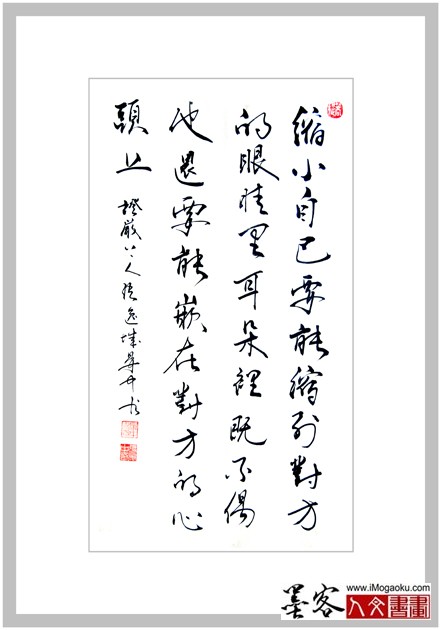 縮小自己要能縮到對方
的眼睛里耳朵裡既不傷
他還要能嵌在對方的心
頭上
墨客
www.iMogaoku.com
人文書畫